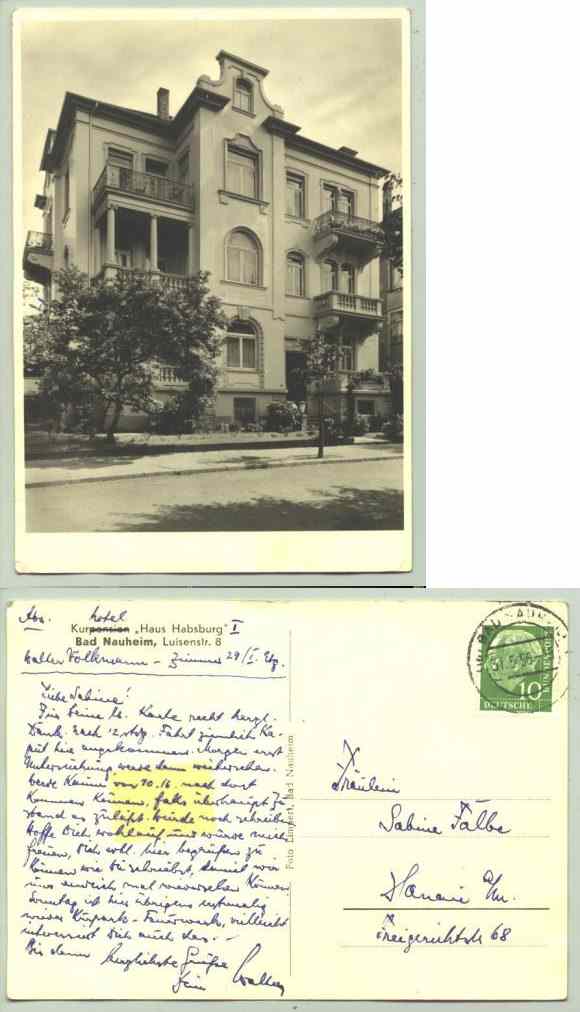 Abs. hotel
Kurpension „Haus Habsburg" I
Bad Nauheim, Luisenstr. 8
Walter Volkmann – Zimmer 29/I. Etg.
Liebe Sabine!
Für Deine lb. Karte recht herzl.
Dank. Nach 12 stdg. Fahrt ziemlich Ka-
putt hier angekommen. Morgen erst
Untersuchung werde dann weitersehen.
Werde kaum vor 10.16. nach dort
kommen können, falls überhaupt Zu-
stand es zuläßt. Würde noch schreiben
hoffe Dich wohlauf und würde mich
freuen, Dich evtl. hier begrüßen zu
können wie Du schriebst, damit wir
uns endlich mal wiedersehen können
Sonntag ist hier übrigens erstmalig
wieder Kurpark-Feuerwerk, vielleicht
interessiert Dich auch das. –
Bis dann herzlichste Grüße
Dein Walter
Foto Limpert, Bad Nauheim
BAD NAUHEIM
31.5.56
10
DEUTSCHE
BUNDESPOST
Fräulein
Sabine Falbe
Hanau a/M.
Freigerichtstr. 68